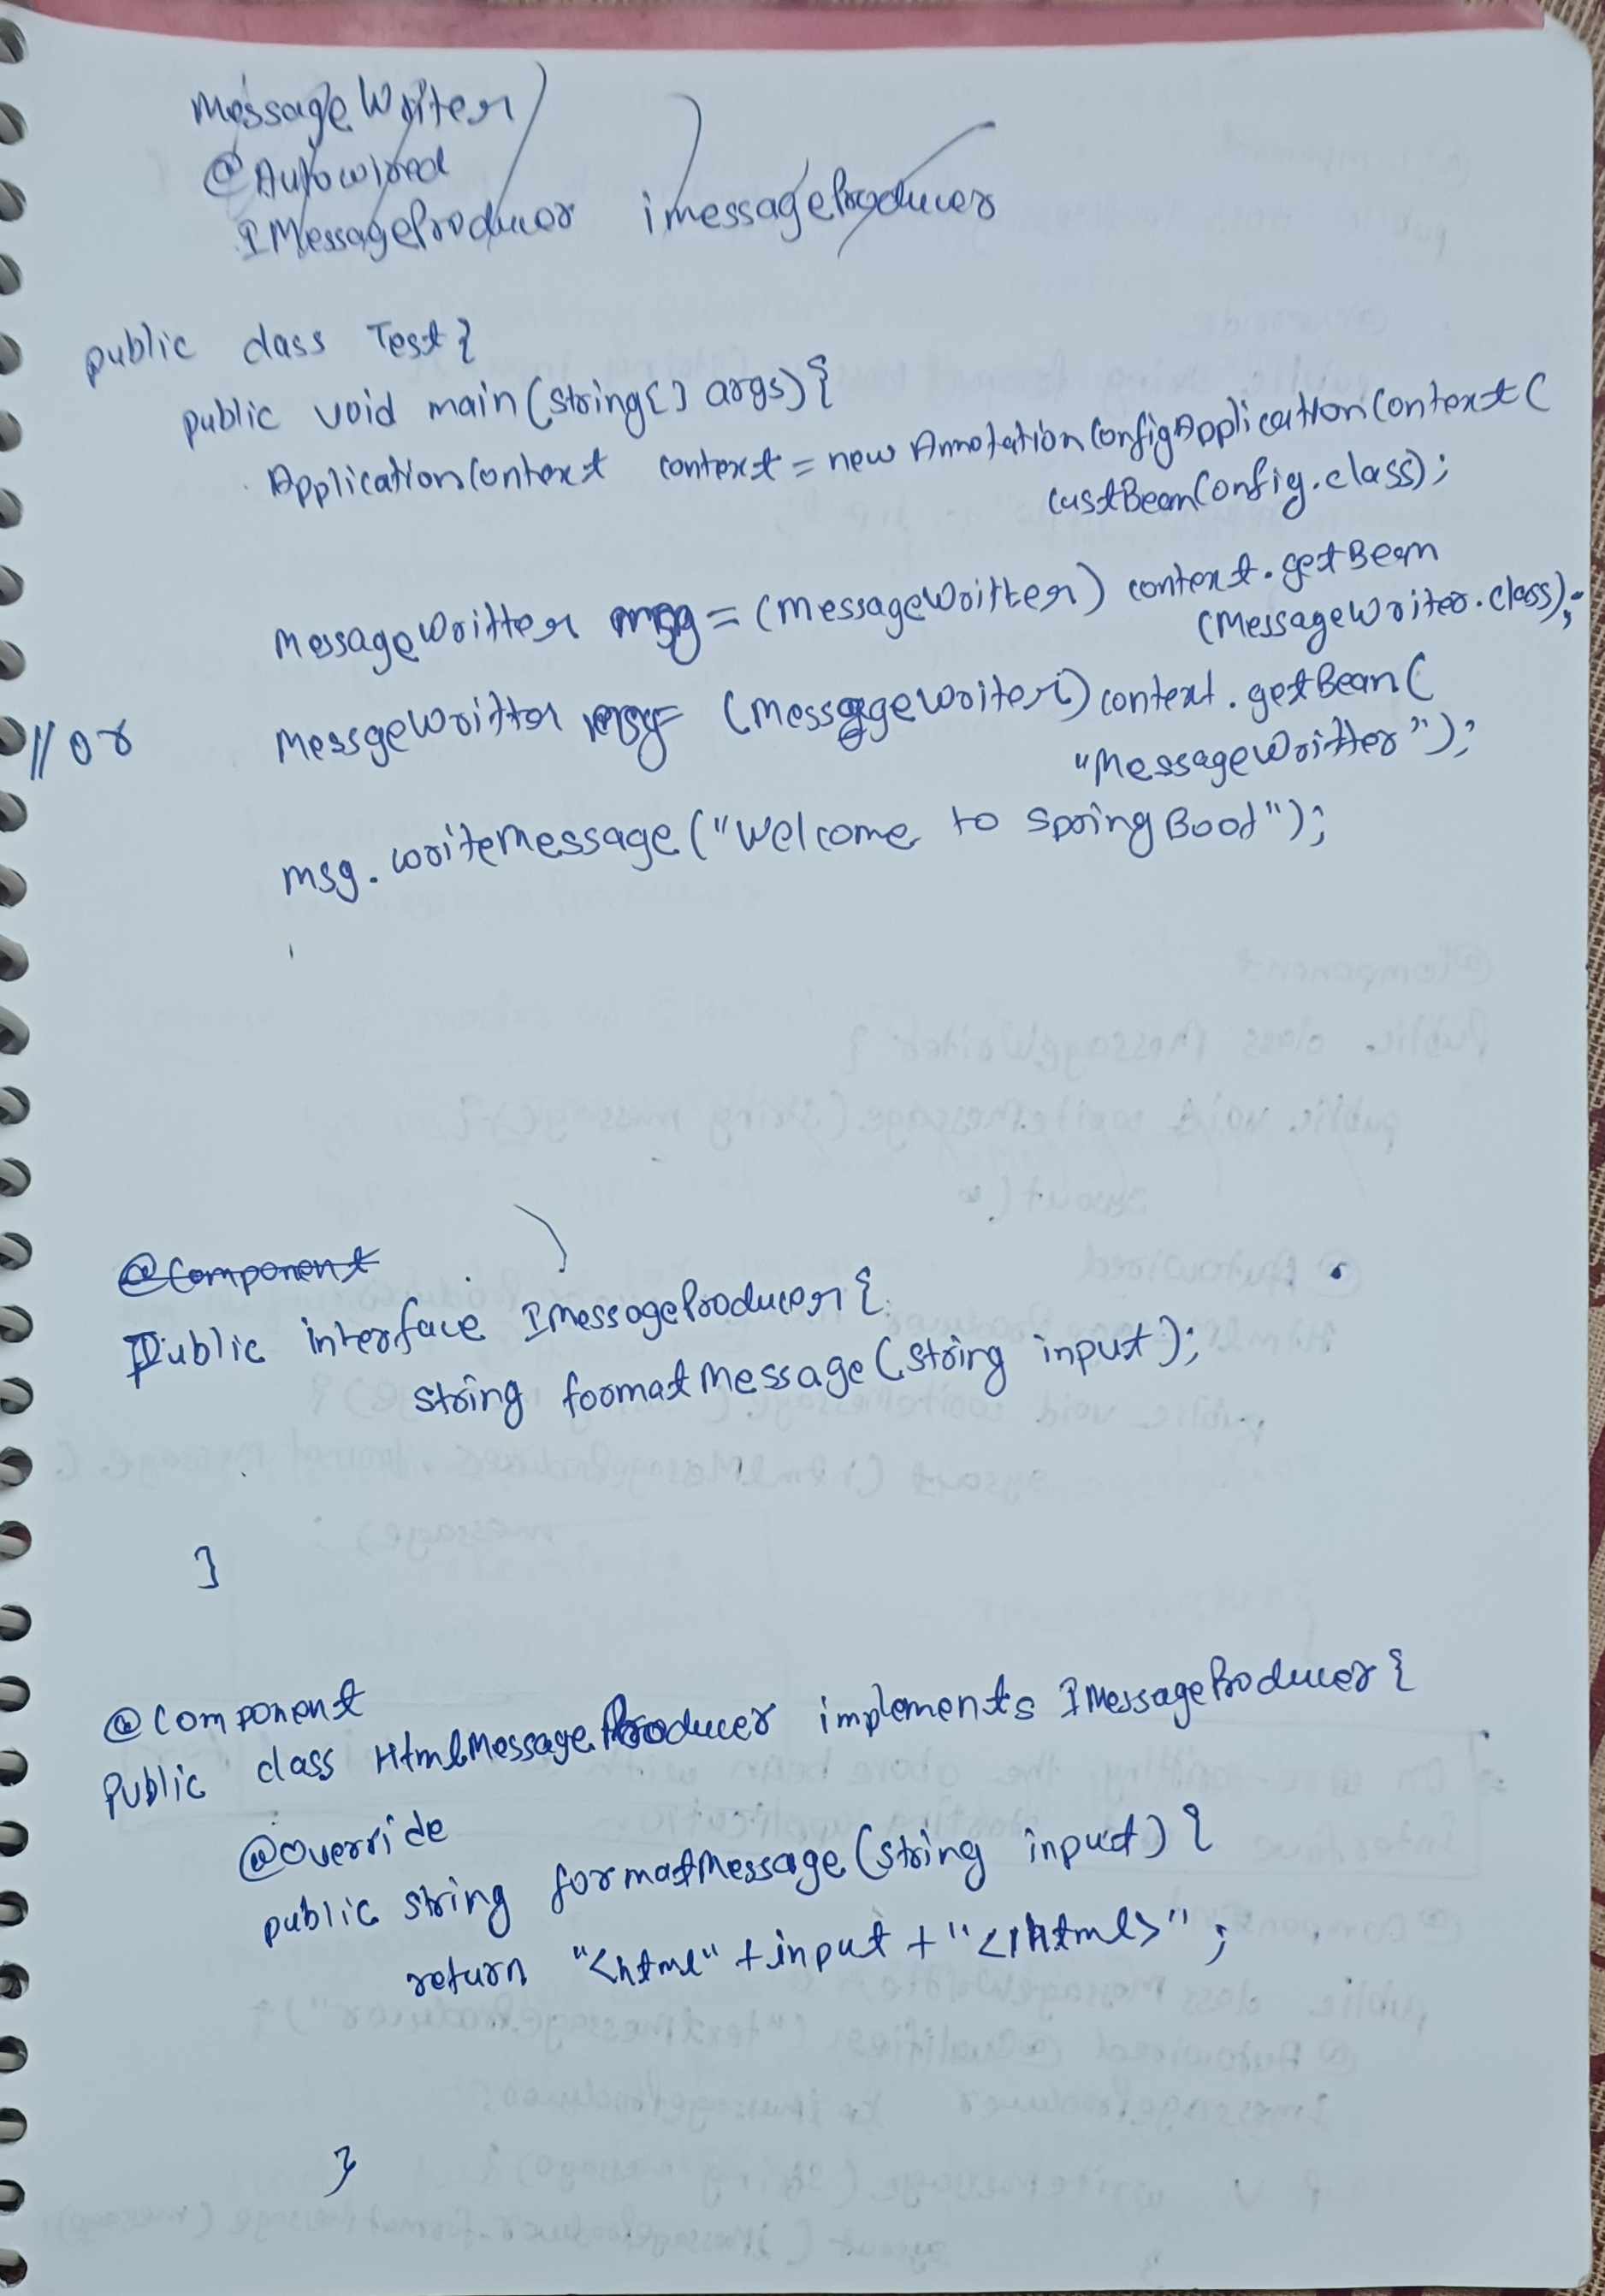 MessageWriter
@Autowired
IMessageProducer imessageProducer
public class Test{
public void main(string[] args){
ApplicationContext context = new AnnotationConfigApplicationContext(
CustBeanConfig.class);
MessageWritter msg = (MessageWritter) context.getBean
(MessageWriter.class);
//or MessgeWritter msg = (MessageWriter) context.getBean(
"MessageWritter");
msg.writeMessage("Welcome to Spring Boot");
@Component
Public interface IMessageProducer{
string formatMessage(string input);
}
@Component
Public class HtmlMessageProducer implements IMessageProducer{
@Override
public string formatMessage(string input) {
return "<html" + input + "</html>";
}